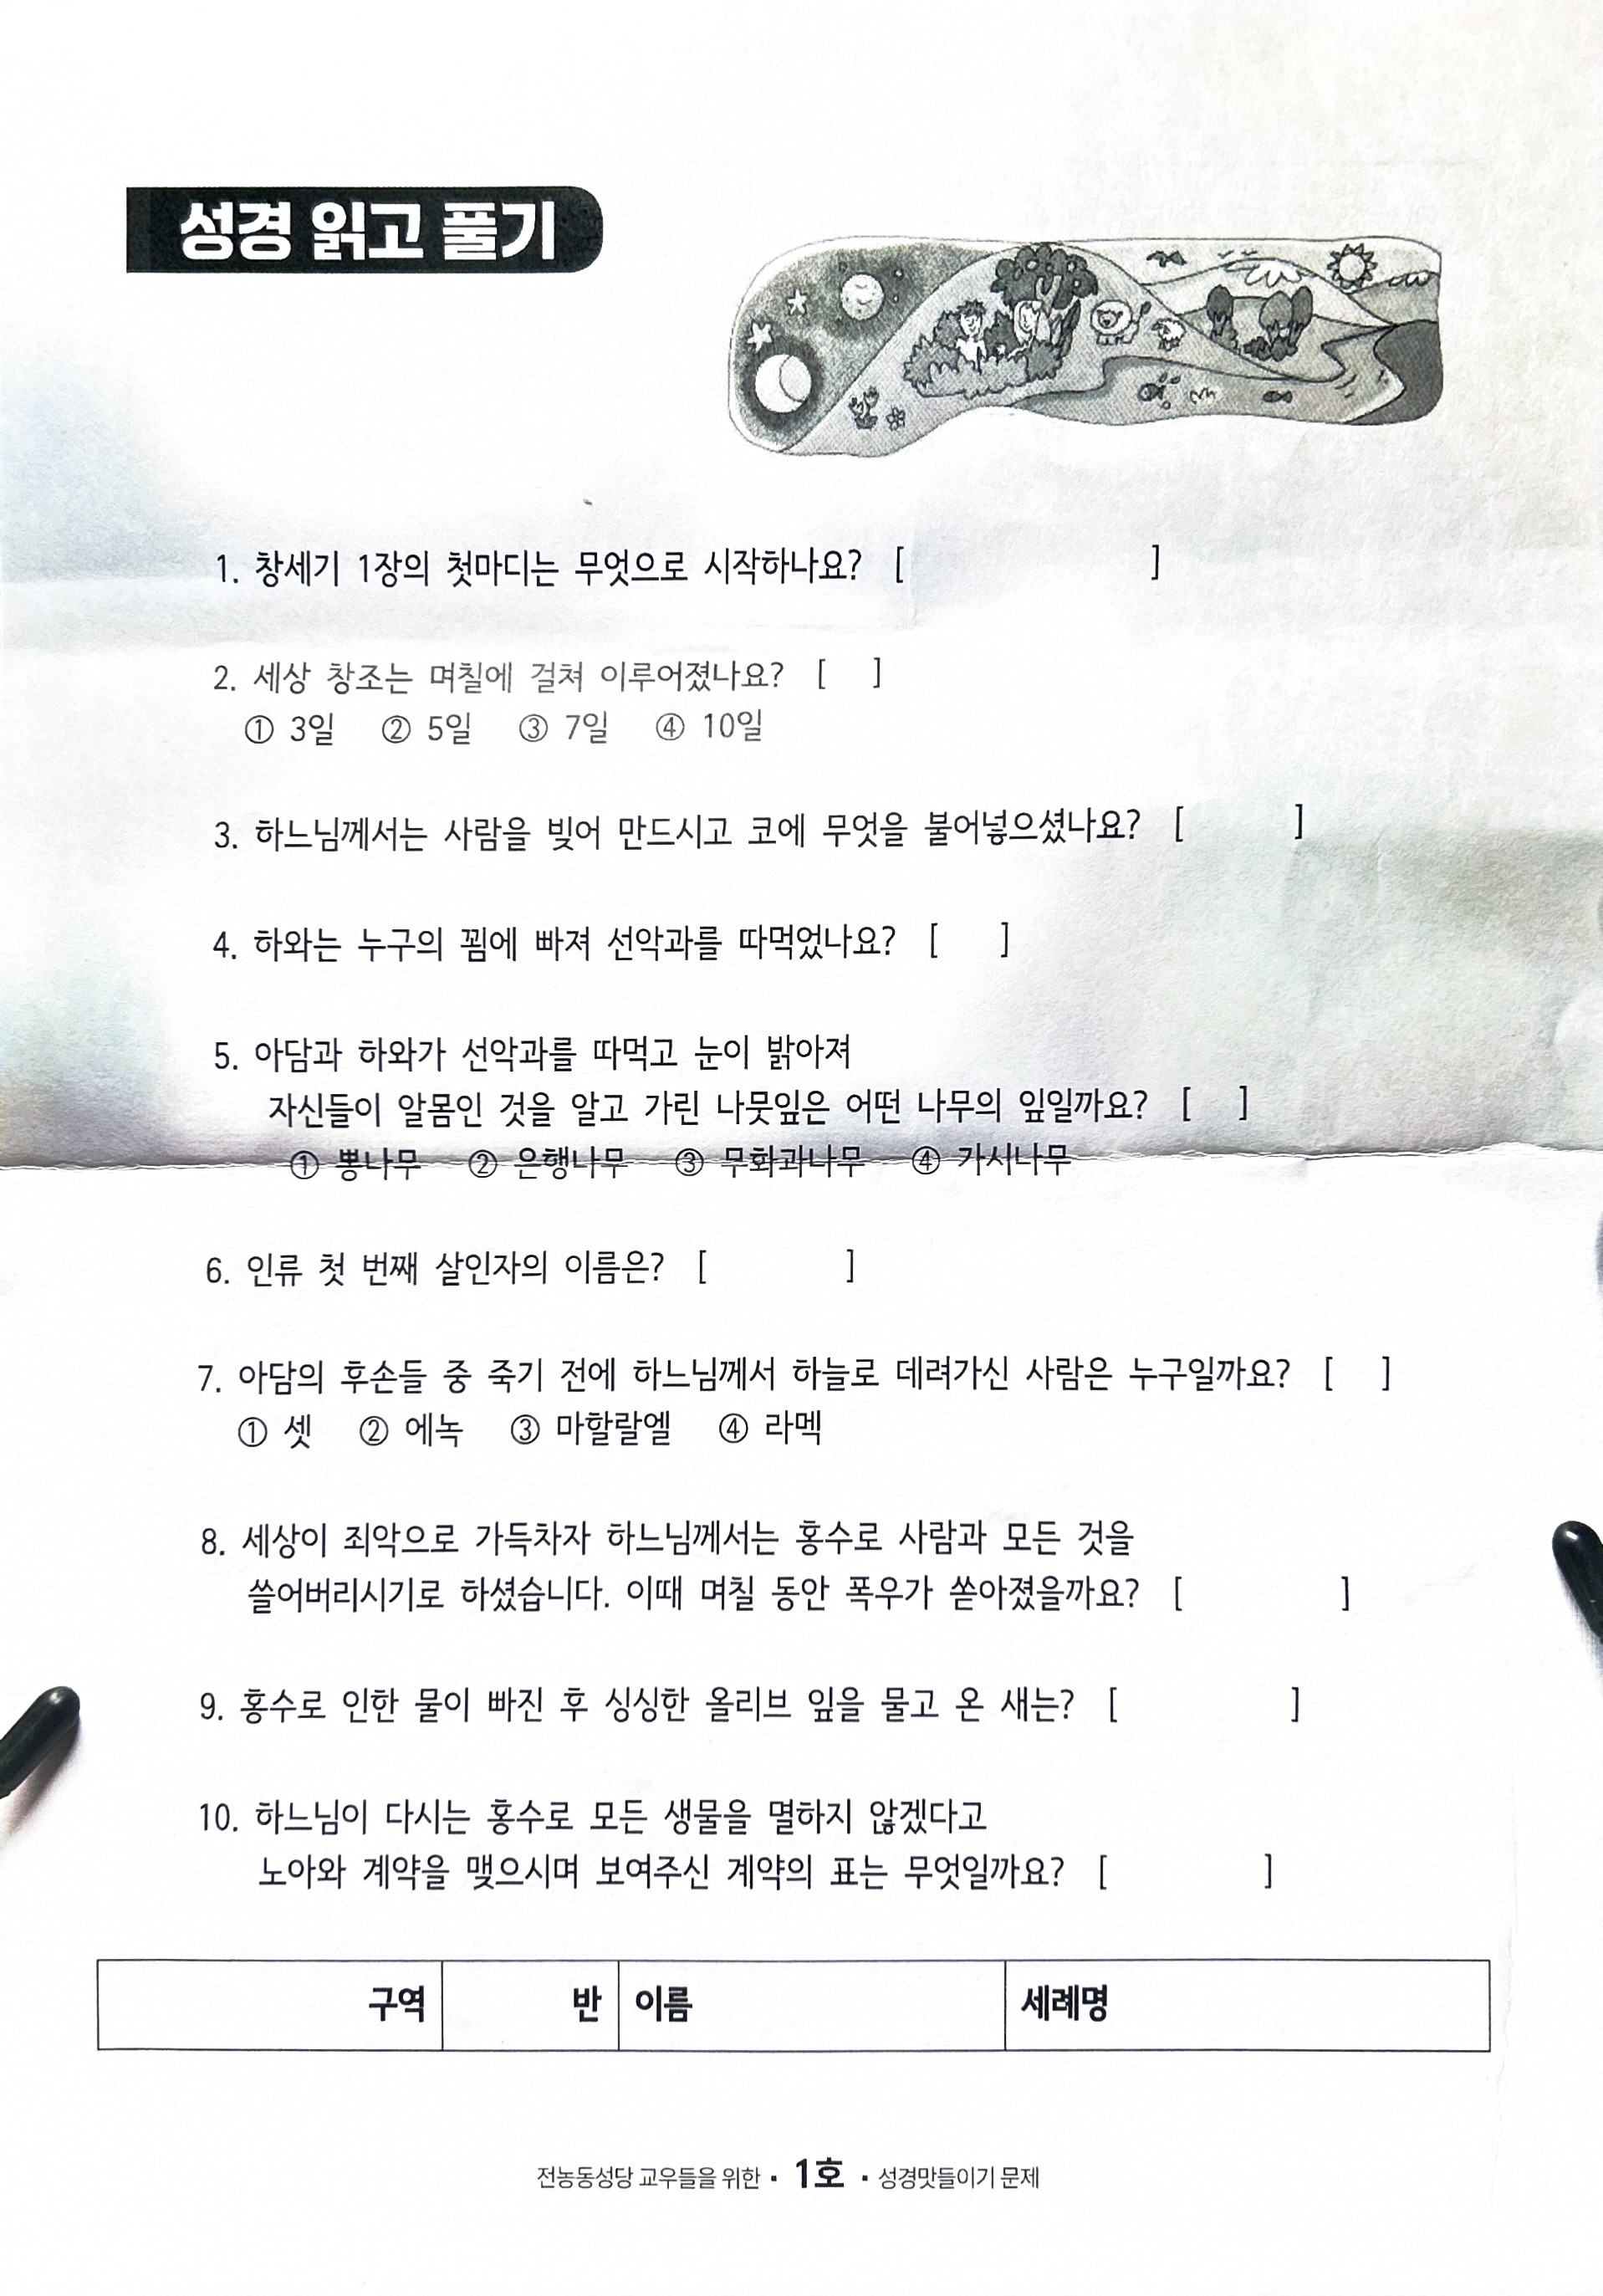 성경 읽고 풀기
1. 창세기 1장의 첫마디는 무엇으로 시작하나요? [ ]
2. 세상 창조는 며칠에 걸쳐 이루어졌나요? [ ]
① 3일 ② 5일 ③ 7일 ④ 10일
3. 하느님께서는 사람을 빚어 만드시고 코에 무엇을 불어넣으셨나요? [ ]
4. 하와는 누구의 꾐에 빠져 선악과를 따먹었나요? [ ]
5. 아담과 하와가 선악과를 따먹고 눈이 밝아져
자신들이 알몸인 것을 알고 가린 나뭇잎은 어떤 나무의 잎일까요? [ ]
① 뽕나무 ② 은행나무 ③ 무화과나무 ④ 가시나무
6. 인류 첫 번째 살인자의 이름은? [ ]
7. 아담의 후손들 중 죽기 전에 하느님께서 하늘로 데려가신 사람은 누구일까요? [ ]
① 셋 ② 에녹 ③ 마할랄엘 ④ 라멕
8. 세상이 죄악으로 가득차자 하느님께서는 홍수로 사람과 모든 것을
쓸어버리시기로 하셨습니다. 이때 며칠 동안 폭우가 쏟아졌을까요? [ ]
9. 홍수로 인한 물이 빠진 후 싱싱한 올리브 잎을 물고 온 새는? [ ]
10. 하느님이 다시는 홍수로 모든 생물을 멸하지 않겠다고
노아와 계약을 맺으시며 보여주신 계약의 표는 무엇일까요? [ ]
구역 반 이름 세례명
전농동성당 교우들을 위한 · 1호 · 성경맛들이기 문제